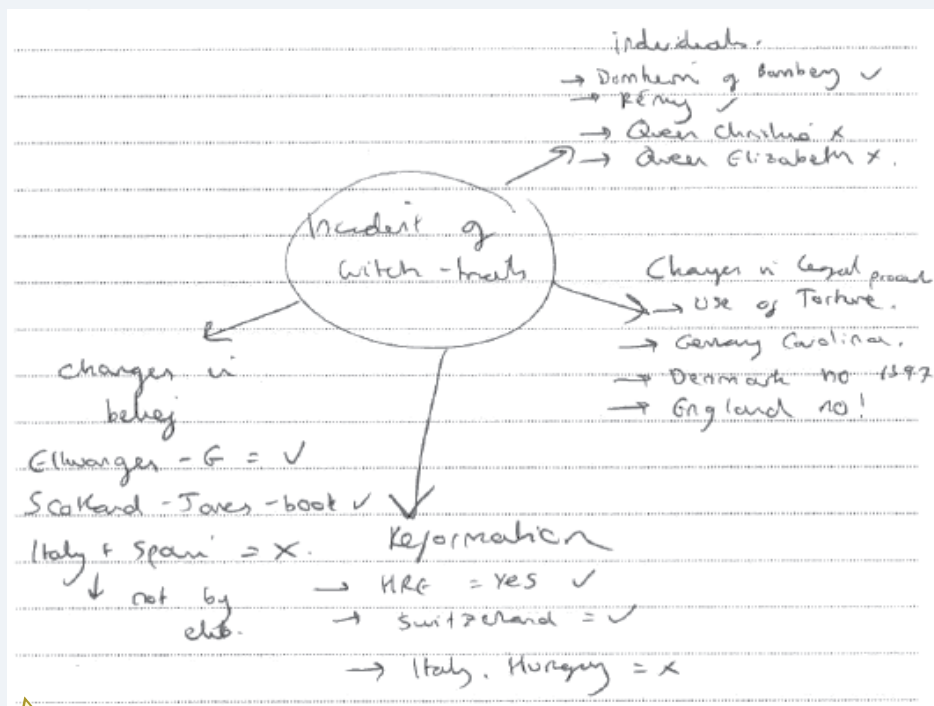 individuals.
→ Dornheim of Bamberg ✓
→ Rémy ✓
→ Queen Christina x
→ Queen Elizabeth x.
Incident of
witch-trials
Changes in legal proced
→ Use of Torture.
→ Germany Carolina.
→ Denmark no
→ England no!
changes in
belief
Ellwangen - G = ✓
Scotland - James - book ✓
Italy + Spain = X.
↓ not by
Reformation
→ HRE = Yes ✓
→ Switzerland = ✓
→ Italy, Hungary = x